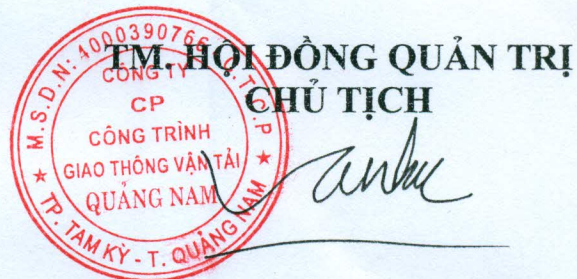 TM. HỘI ĐỒNG QUẢN TRỊ
CHỦ TỊCH
M.S.D.N: 4000390766 C.T.C.P
CÔNG TY
CP
CÔNG TRÌNH
GIAO THÔNG VẬN TẢI
QUẢNG NAM
TP. TAM KỲ - T. QUẢNG NAM